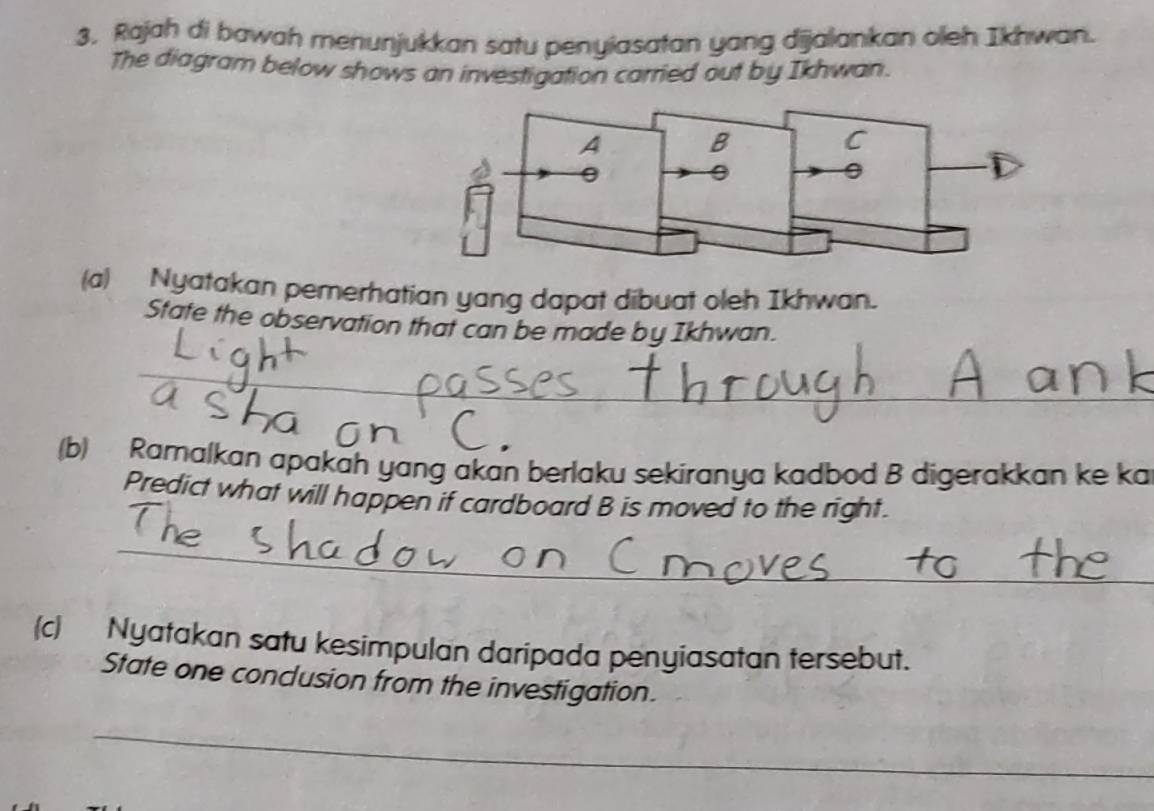 3. Rajah di bawah menunjukkan satu penyiasatan yang dijalankan oleh Ikhwan.
The diagram below shows an investigation carried out by Ikhwan.
A B C
(a) Nyatakan pemerhatian yang dapat dibuat oleh Ikhwan.
State the observation that can be made by Ikhwan.
Light passes through A
a sha on C.
(b) Ramalkan apakah yang akan berlaku sekiranya kadbod B digerakkan ke
Predict what will happen if cardboard B is moved to the right.
The shadow on C moves to the
(c) Nyatakan satu kesimpulan daripada penyiasatan tersebut.
State one conclusion from the investigation.